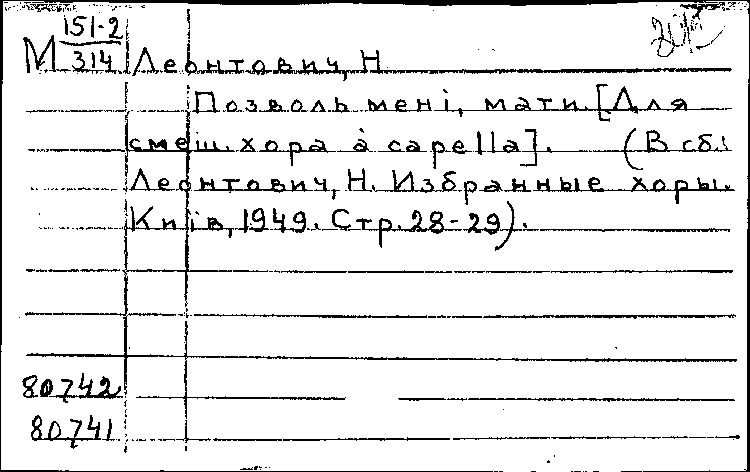 М 151-2
314
Леонтович, Н
Позволь мені, мати. [Для
смеш. хора à capella]. (В сб.:
Леонтович, Н. Избранные хоры.
Київ, 1949. Стр. 28-29).
80742
80741